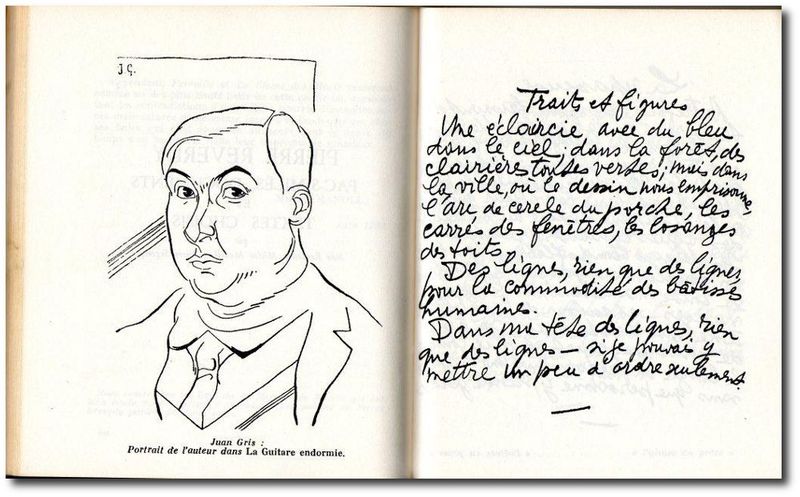 J G.
Juan Gris :
Portrait de l'auteur dans La Guitare endormie.
Traits et figures
Une éclaircie avec du bleu
dans le ciel ; dans la forêt, des
clairières toutes vertes ; mais dans
la ville, où le dessin nous emprisonne,
l'arc de cercle du porche, les
carrés des fenêtres, les losanges
des toits.
Des lignes, rien que des lignes,
pour la commodité des bâtisses
humaines.
Dans ma tête des lignes, rien
que des lignes — si je pouvais y
mettre un peu d'ordre seulement.